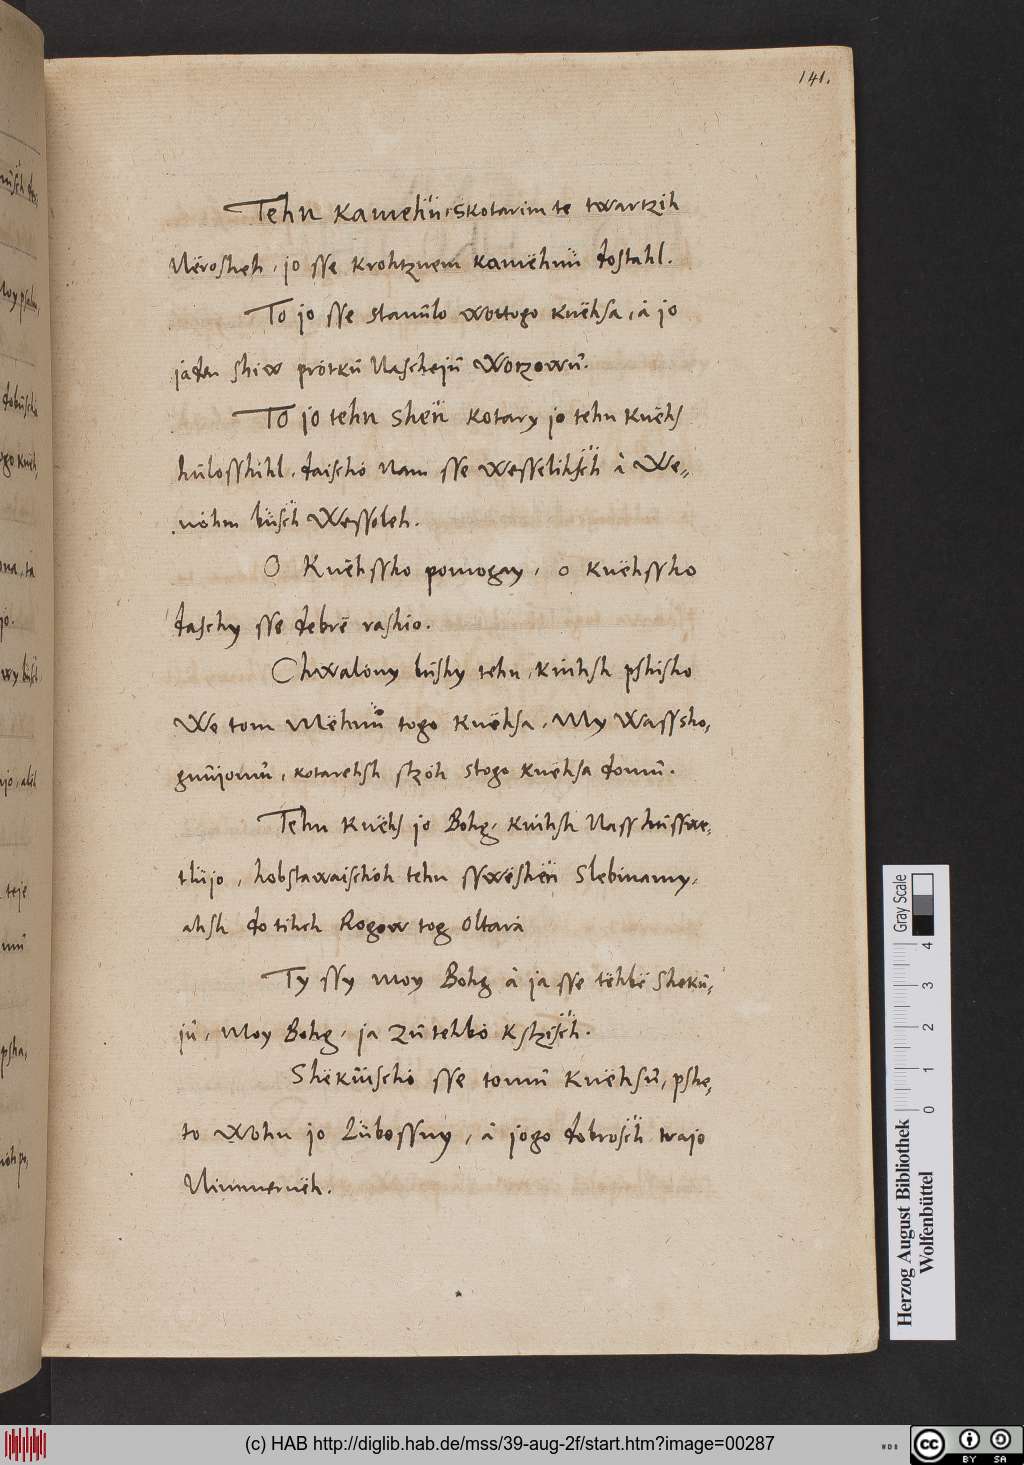 141.
Tehn kamehn, skotarim te twartzih
Nëroshçh, jo sse krohtznem kamëhnu dostahl.
To jo sse stanûlo wottogo knëhsa, à jo
jàden shiw protkû Naschejû Wotzowû.
To jo tehn sheñ kotary jo tehn knëhs
hûlosshihl, daischo nam sse wesselihsch à We=
nöhm büsch Wessoleh.
O Knëhssho pomogay, o knëhssho
daschy sse debrë rashio.
Chwalony büshy tehn, knihsh pshisho
We tom Mëhnü togo knëhsa, My Wassho,
gnüjomû, kotarehsh stzöh stogo knëhsa domû.
Tehn knëhs jo Bohg, knihsh Nass hüsswe,
tlüjo, hobstawaischöh tehn sswëshen Slebinamy,
ahsh do tihch Rogow tog Oltarà
Ty ssy moy Bohg à ja sse tëhbë Shekû,
jû, Moy Bohg, ja zû tehbo kstzisch.
Shëkûischo sse tomû knëhsû, pshe,
to wohn jo Lübossny, à jogo dobrosch trajo
Nimmernëh.
Herzog August Bibliothek
Wolfenbüttel
0 1 2 3 4
Gray Scale
(c) HAB http://diglib.hab.de/mss/39-aug-2f/start.htm?image=00287
WDB
cc BY SA